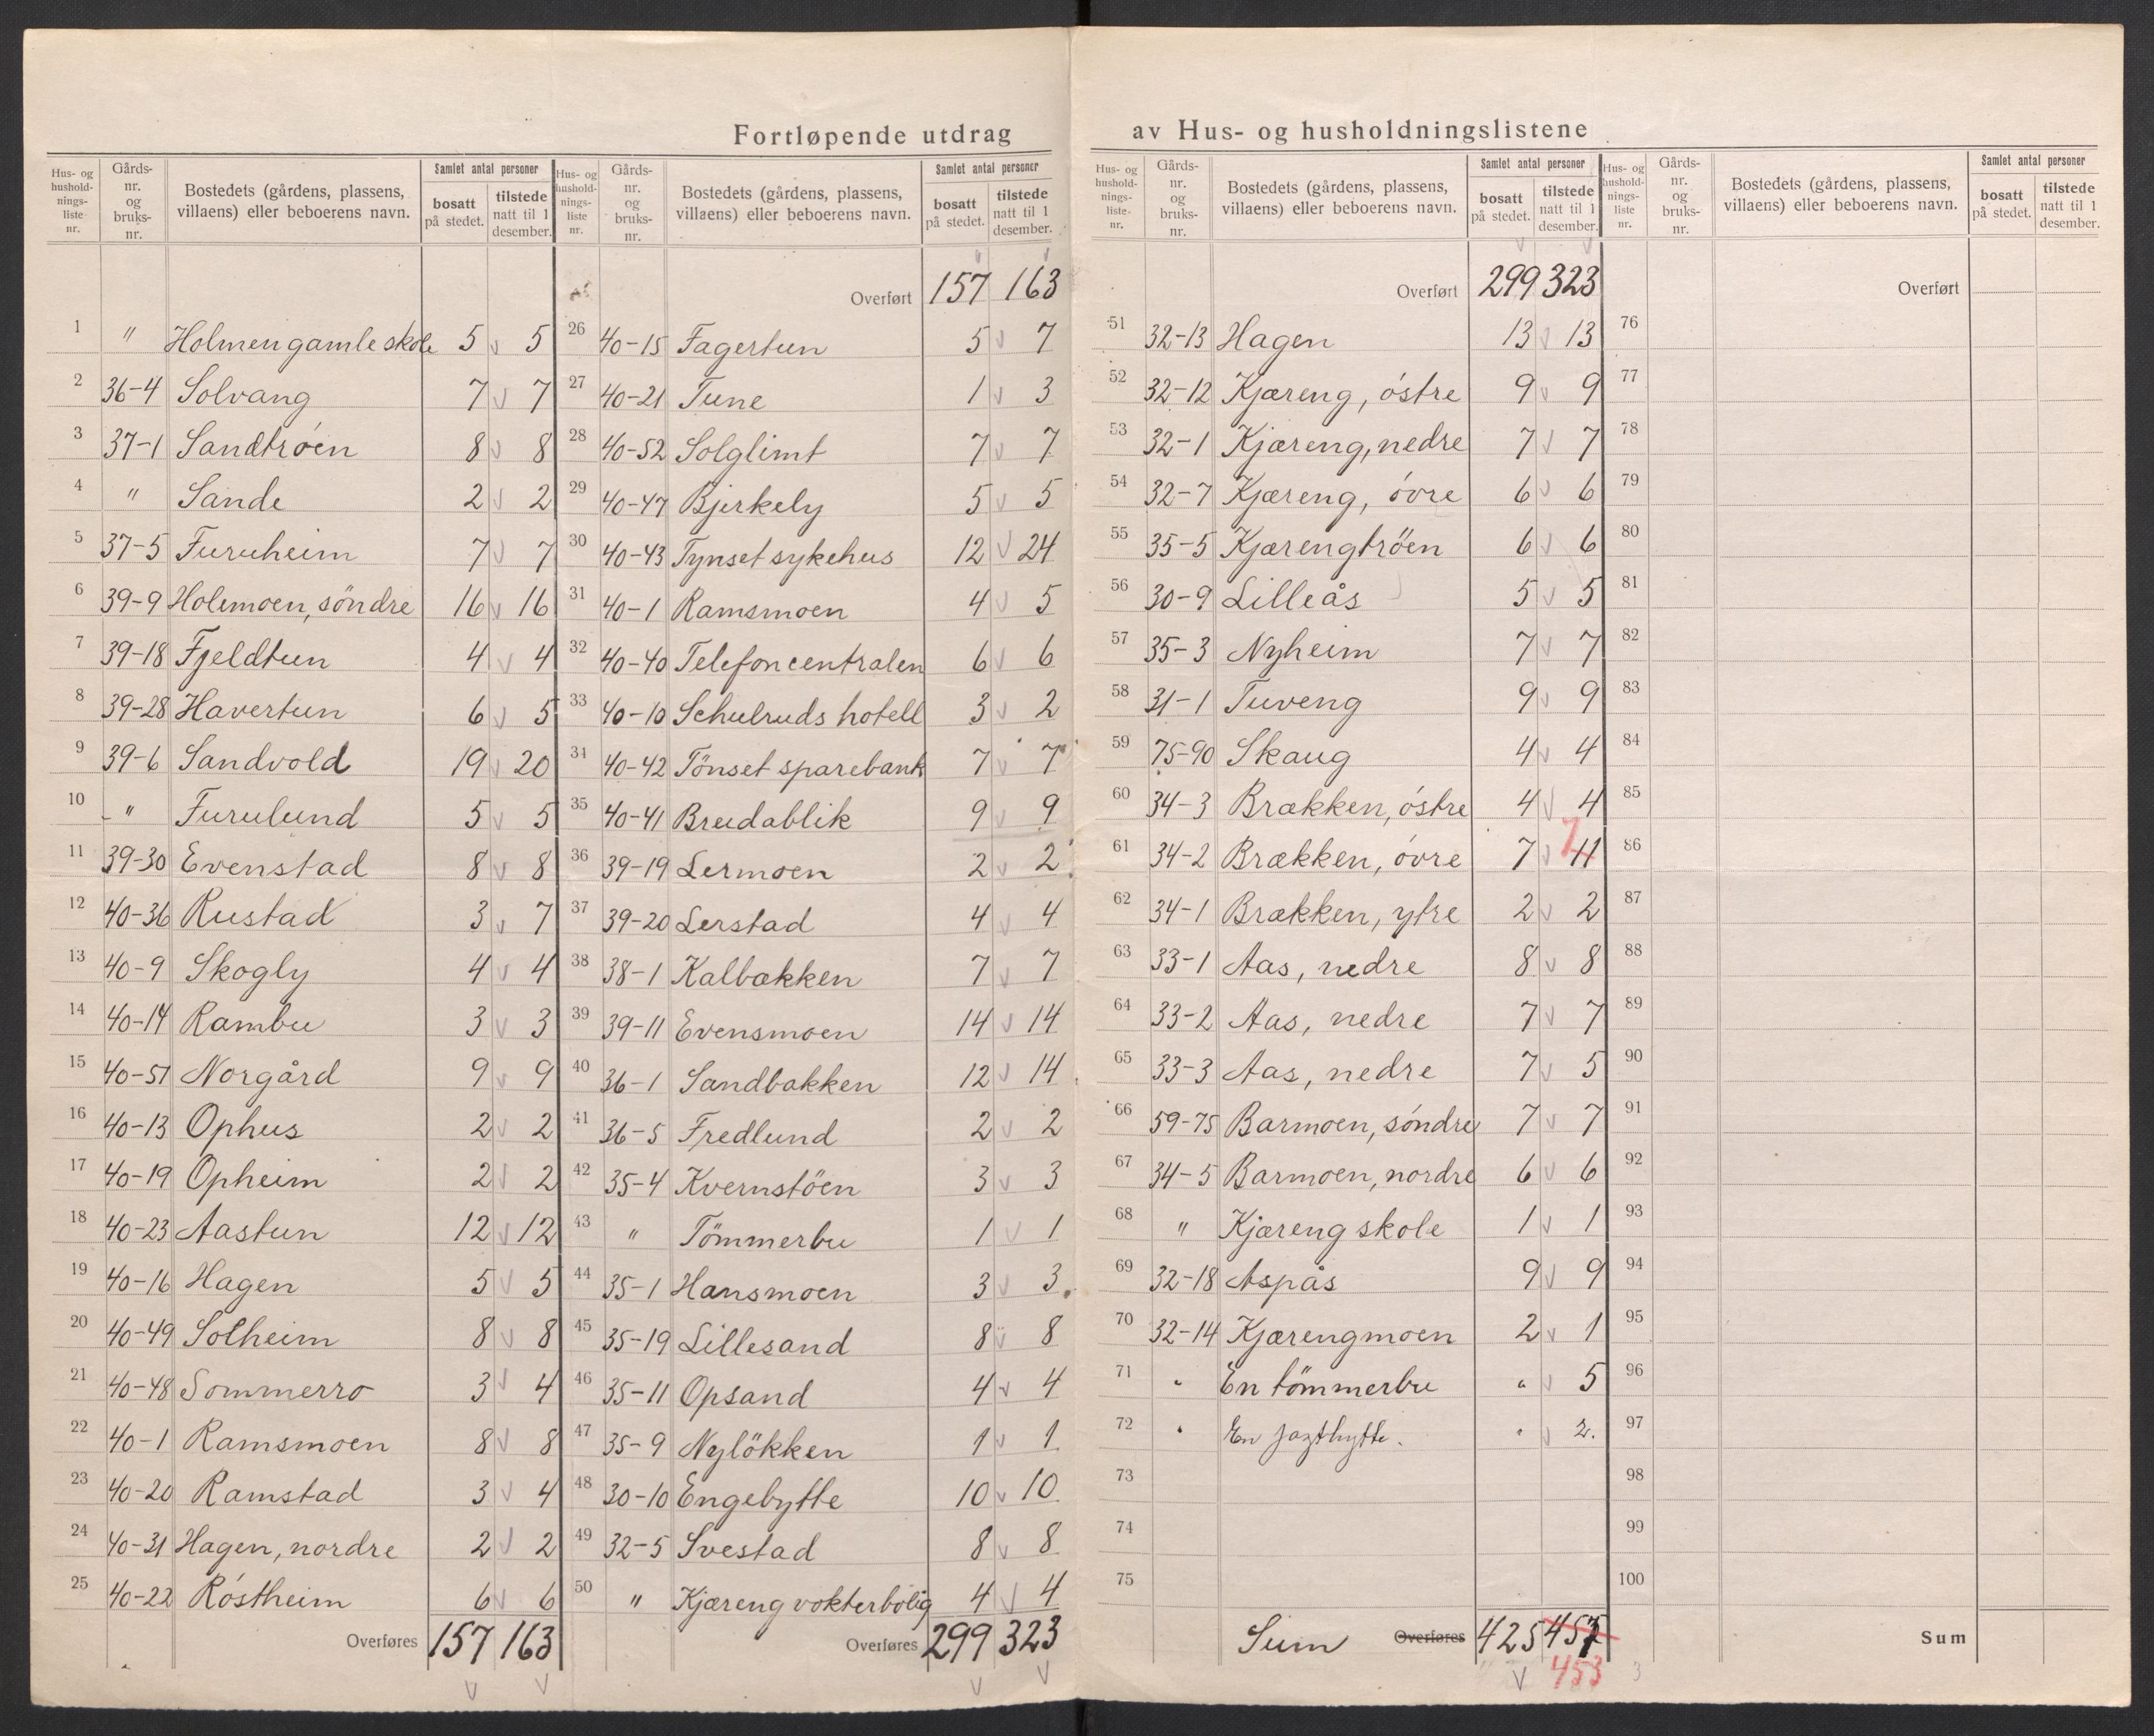 Fortløpende utdrag av Hus- og husholdningslistene
Hus- og hushold-nings-liste nr. | Gårds-nr. og bruks-nr. | Bostedets (gårdens, plassens, villaens) eller beboerens navn. | Samlet antal personer | bosatt på stedet. | tilstede natt til 1 desember.
1 " Holmen gamle skole 5 5
2 36-4 Solvang 7 7
3 37-1 Sandtrøen 8 8
4 " Sande 2 2
5 37-5 Furuheim 7 7
6 39-9 Holmoen, söndre 16 16
7 39-18 Fjeldtun 4 4
8 39-28 Havertun 6 5
9 39-6 Sandvold 19 20
10 -"- Furulund 5 5
11 39-30 Evenstad 8 8
12 40-36 Rustad 3 7
13 40-9 Skogly 4 4
14 40-14 Rambu 3 3
15 40-51 Norgård 9 9
16 40-13 Ophus 2 2
17 40-19 Opheim 2 2
18 40-23 Aastun 12 12
19 40-16 Hagen 5 5
20 40-49 Solheim 8 8
21 40-48 Sommerro 3 4
22 40-1 Ramsmoen 8 8
23 40-20 Ramstad 3 4
24 40-31 Hagen, nordre 2 2
25 40-22 Röstheim 6 6
Overføres 157 163
Hus- og hushold-nings-liste nr. | Gårds-nr. og bruks-nr. | Bostedets (gårdens, plassens, villaens) eller beboerens navn. | Samlet antal personer | bosatt på stedet. | tilstede natt til 1 desember.
Overført 157 163
26 40-15 Fagertun 5 7
27 40-21 Tune 1 3
28 40-52 Solglimt 7 7
29 40-47 Bjerkely 5 5
30 40-43 Tynset sykehus 12 24
31 40-1 Ramsmoen 4 5
32 40-40 Telefoncentralen 6 6
33 40-10 Schulruds hotell 3 2
34 40-42 Tönset sparebank 7 7
35 40-41 Breidablik 9 9
36 39-19 Lermoen 2 2
37 39-20 Lerstad 4 4
38 38-1 Kalbakken 7 7
39 39-11 Evensmoen 14 14
40 36-1 Sandbakken 12 14
41 36-5 Fredlund 2 2
42 35-4 Kvernstöen 3 3
43 " Tömmerbu 1 1
44 35-1 Hansmoen 3 3
45 35-19 Lillesand 8 8
46 35-11 Opsand 4 4
47 35-9 Nylökken 1 1
48 30-10 Engebytte 10 10
49 32-5 Svestad 8 8
50 " Kjæreng vokterbolig 4 4
Overføres 299 323
Hus- og hushold-nings-liste nr. | Gårds-nr. og bruks-nr. | Bostedets (gårdens, plassens, villaens) eller beboerens navn. | Samlet antal personer | bosatt på stedet. | tilstede natt til 1 desember.
Overført 299 323
51 32-13 Hagen 13 13
52 32-12 Kjæreng, östre 9 9
53 32-1 Kjæreng, nedre 7 7
54 32-7 Kjæreng, övre 6 6
55 35-5 Kjærengtröen 6 6
56 30-9 Lilleås 5 5
57 35-3 Nyheim 7 7
58 31-1 Tuveng 9 9
59 75-90 Skaug 4 4
60 34-3 Brækken, östre 4 4
61 34-2 Brækken, övre 7 11 7
62 34-1 Brækken, ytre 2 2
63 33-1 Aas, nedre 8 8
64 33-2 Aas, nedre 7 7
65 33-3 Aas, nedre 7 5
66 59-75 Barmoen, söndre 7 7
67 34-5 Barmoen, nordre 6 6
68 " Kjæreng skole 1 1
69 32-18 Aspås 9 9
70 32-14 Kjærengmoen 2 1
71 " En tömmerbu " 5
72 " En jagthytte. " 2.
73
74
75
Sum Overføres 425 457
453 3
Hus- og hushold-nings-liste nr. | Gårds-nr. og bruks-nr. | Bostedets (gårdens, plassens, villaens) eller beboerens navn. | Samlet antal personer | bosatt på stedet. | tilstede natt til 1 desember.
Overført
76
77
78
79
80
81
82
83
84
85
86
87
88
89
90
91
92
93
94
95
96
97
98
99
100
Sum